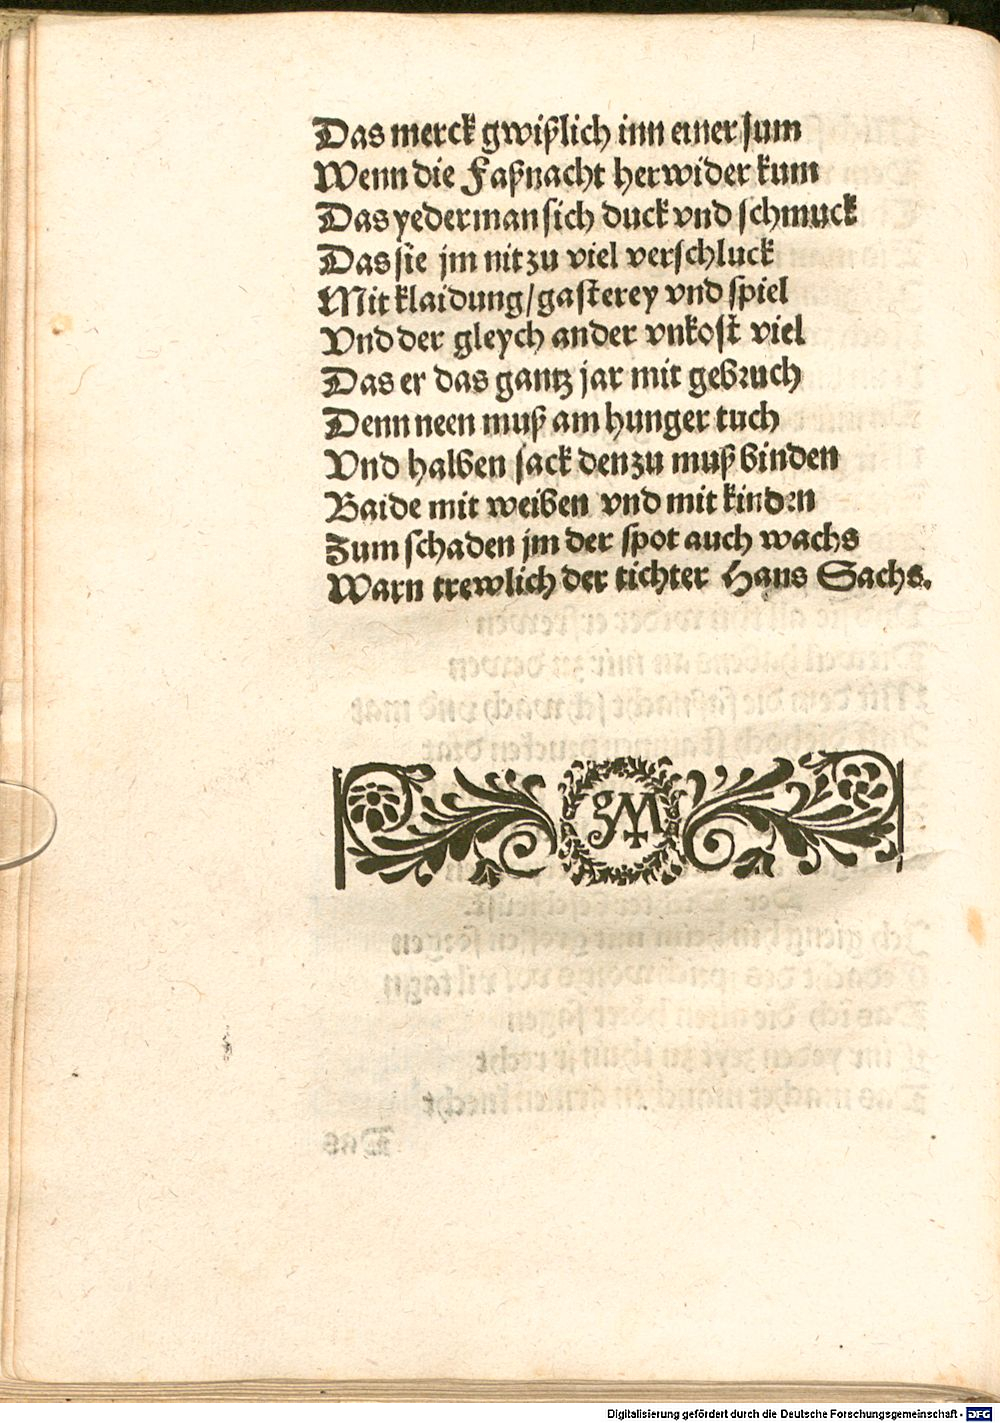 Das merck gwißlich inn einer sum
Wenn die Faßnacht herwider kum
Das yederman sich duck vnd schmuck
Das sie jm nit zu viel verschluck
Mit klaidung/gasterey vnd spiel
Vnd der gleych ander vnkost viel
Das er das gantz jar mit gebruch
Denn neen muß am hunger tuch
Vnd halben sack den zu muß binden
Baide mit weiben vnd mit kinden
Zum schaden jm der spot auch wachs
Warn trewlich der tichter Hans Sachs.
Digitalisierung gefördert durch die Deutsche Forschungsgemeinschaft - DFG